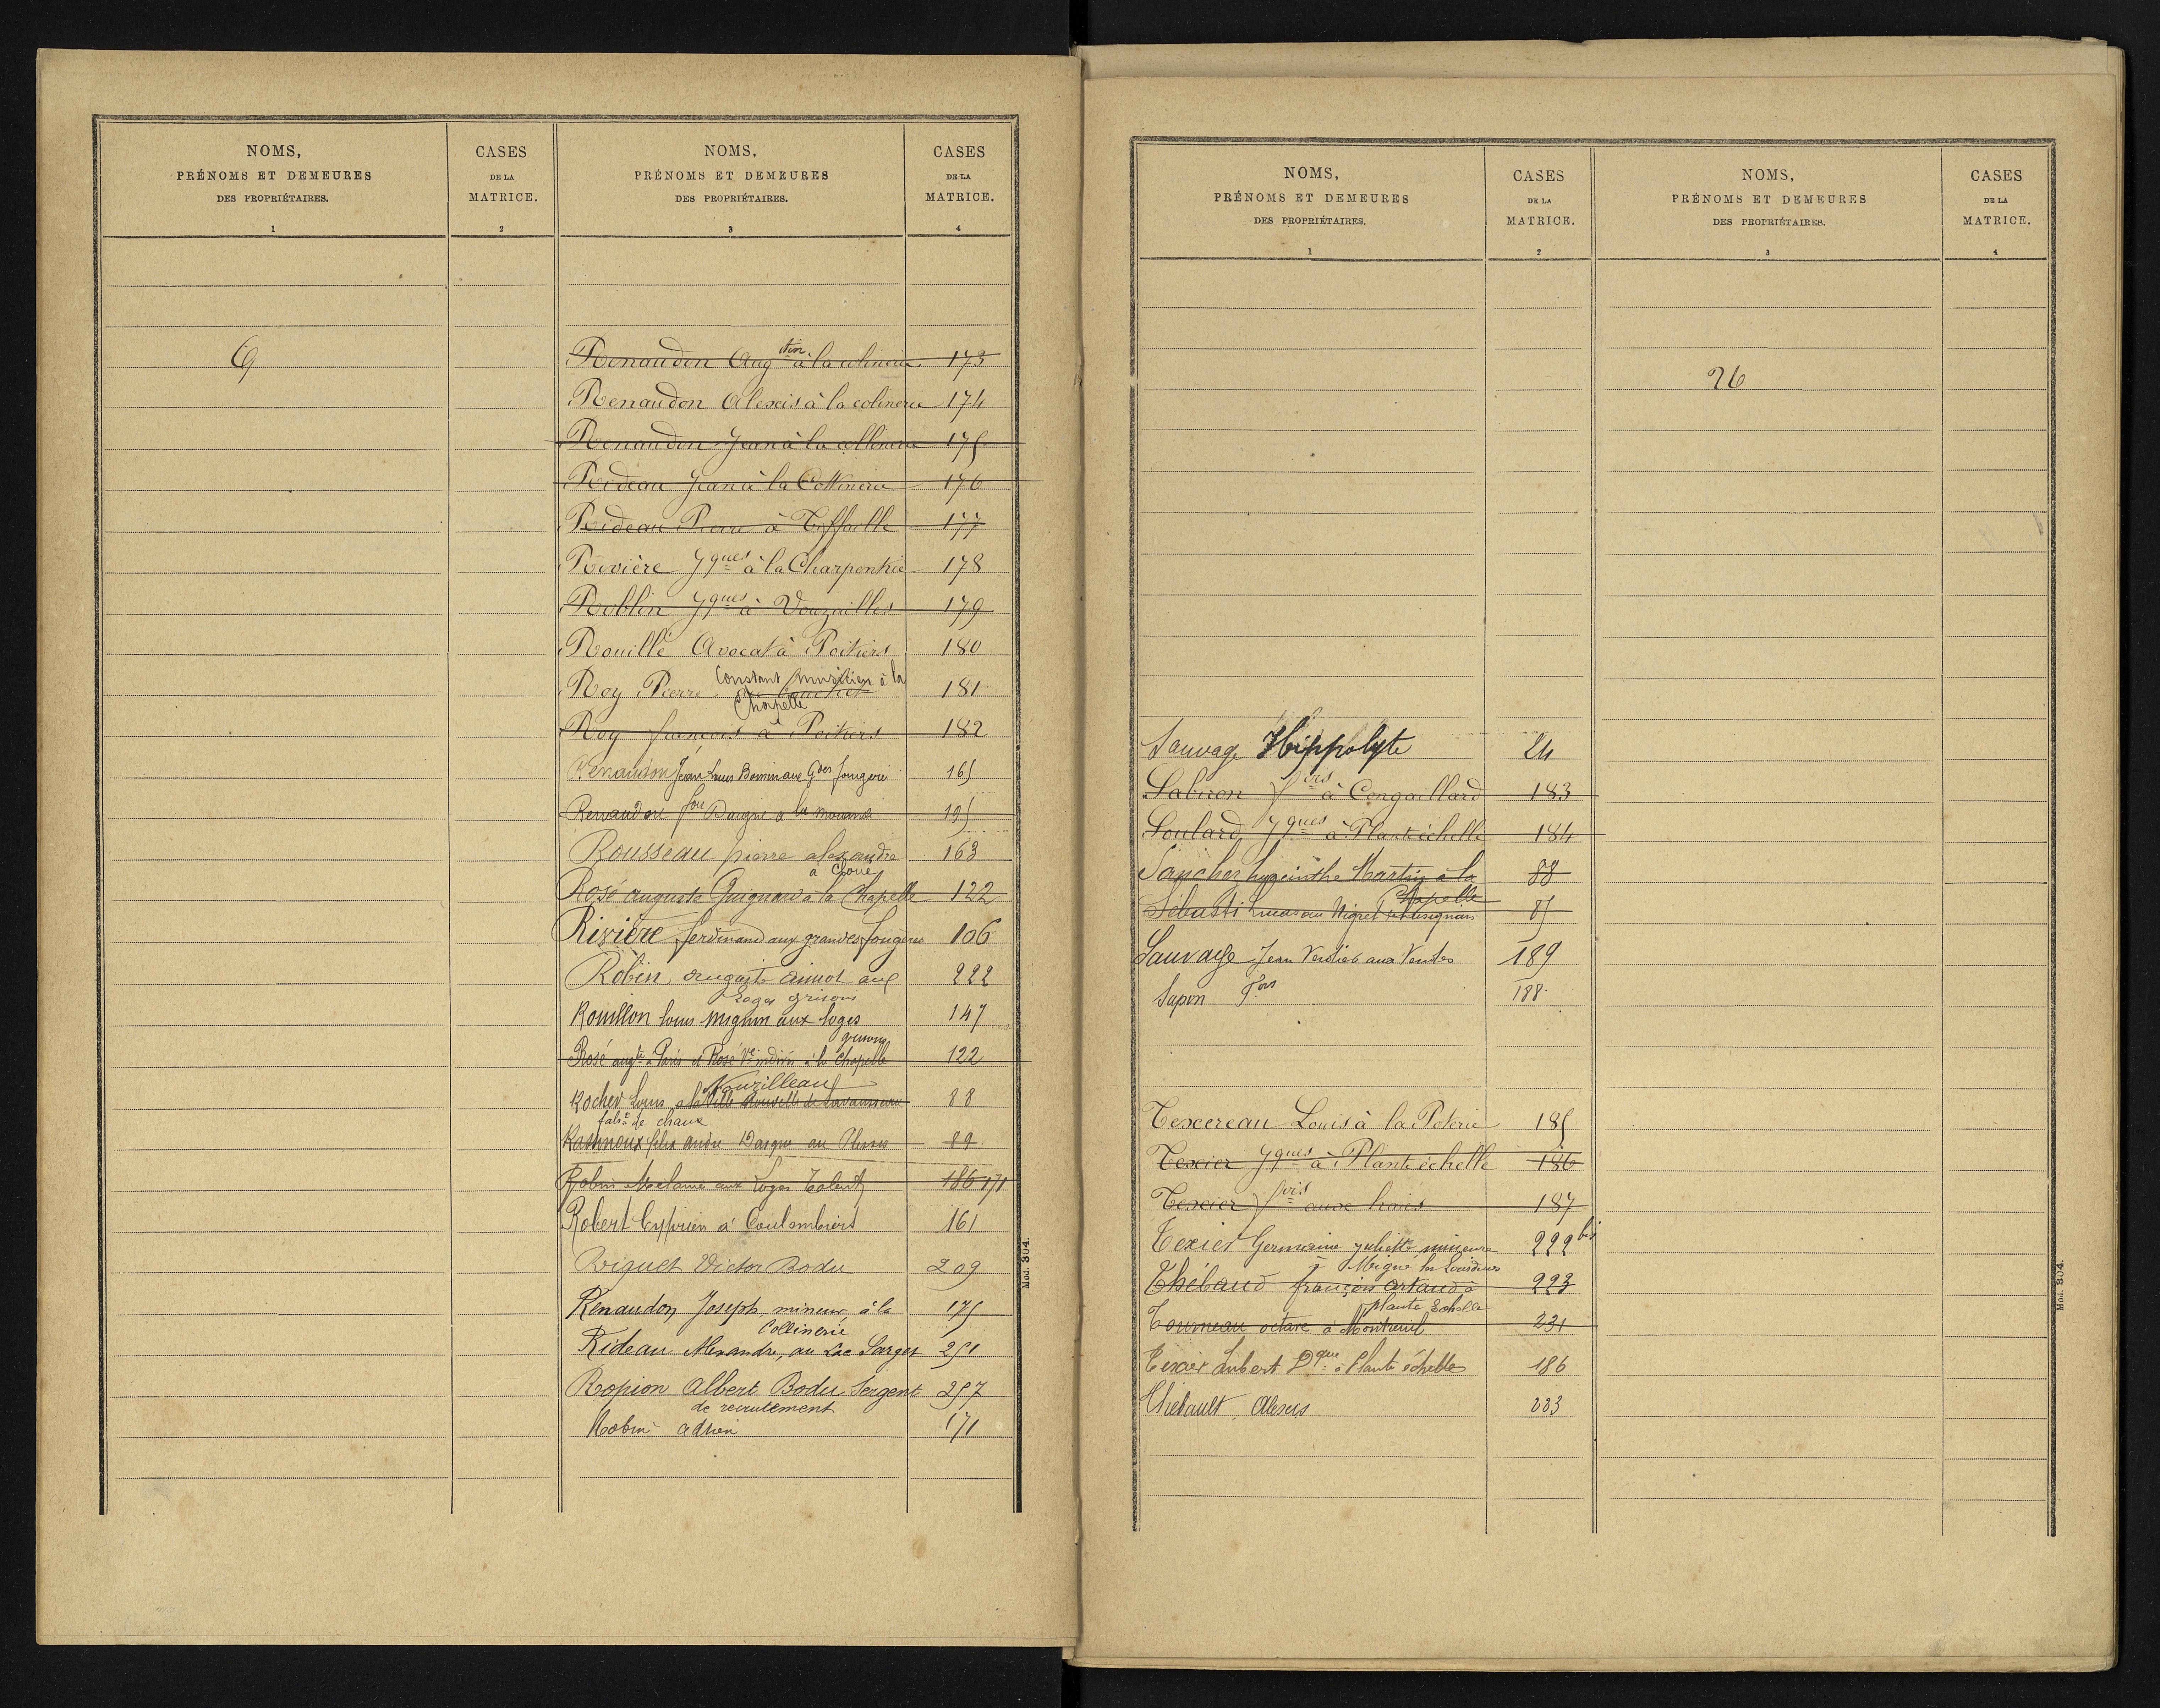 NOMS,
PRÉNOMS ET DEMEURES
DES PROPRIÉTAIRES.
1
CASES
DE LA
MATRICE.
2
NOMS,
PRÉNOMS ET DEMEURES
DES PROPRIÉTAIRES.
3
CASES
DE LA
MATRICE.
4
Q
Renaudon Aug tin à la colinerie 173
Renaudon Alexis à la colinerie 174
Renaudon Jean à la collinerie 175
Rideau Jean à la Collinerie 176
Rideau Pierre à Toffaille 177
Rivière Jques à la Charpentrie 178
Roblin Jques à Vouzailles 179
Rouillé Avocat à Poitiers 180
Roy Pierre Constant à la 181
Chapelle
Roy françois à Poitiers 182
Renaudon Jean Louis Bonnin aux Gdes fougere 165
Renaudon fois Daigne à la 195
Rousseau pierre alexandre 163
à Cloué
Rosé auguste Guignard à la Chapelle 122
Rivière ferdinand aux grandes fougeres 106
Robin auguste aux 222
Loges grisons
Rouillon louis Mignon aux loges 147
grisons
Rosé augte à Paris et Rosé Ve à la Chapelle 122
Vouzilleau
Rocher Louis à la Ville Nouvelle de 88
de chaux
felix 89
Robin Melanie aux Loges 186 171
Robert Cyprien à Coulombiers 161
Riquet Victor Bodu 209
Renaudon Joseph mineur à la 175
Collinerie
Rideau Alexandre, au Lac Sarget 251
Ropion Albert Bodu Sergent 257
de recrutement
Robin adrien 171
Mod. 304.
NOMS,
PRÉNOMS ET DEMEURES
DES PROPRIÉTAIRES.
1
CASES
DE LA
MATRICE.
2
NOMS,
PRÉNOMS ET DEMEURES
DES PROPRIÉTAIRES.
3
CASES
DE LA
MATRICE.
4
26
Sauvage Hippolyte 24
Sabiron fois à Congaillard 183
Soulard Jques à Plantéchelle 184
Sancher hyacinthe Martin à la 88
Chapelle
Sebusti Lucas au 85
Sauvage Jean Verdier aux Ventes 189
Sapin Fois 188
Texereau Louis à la Poterie 185
Texier Jques à Plantéchelle 186
Texier fois aux haies 187
Texier Germaine juliette mineure 222 bis
à Migné les Lourdines
Thébaud françois artaud à 223
plante Echelle
Tourneau octave à Montreuil 231
Texier Lubert Dque à Plante échelle 186
Thébault Alexis 223
Mod. 304.